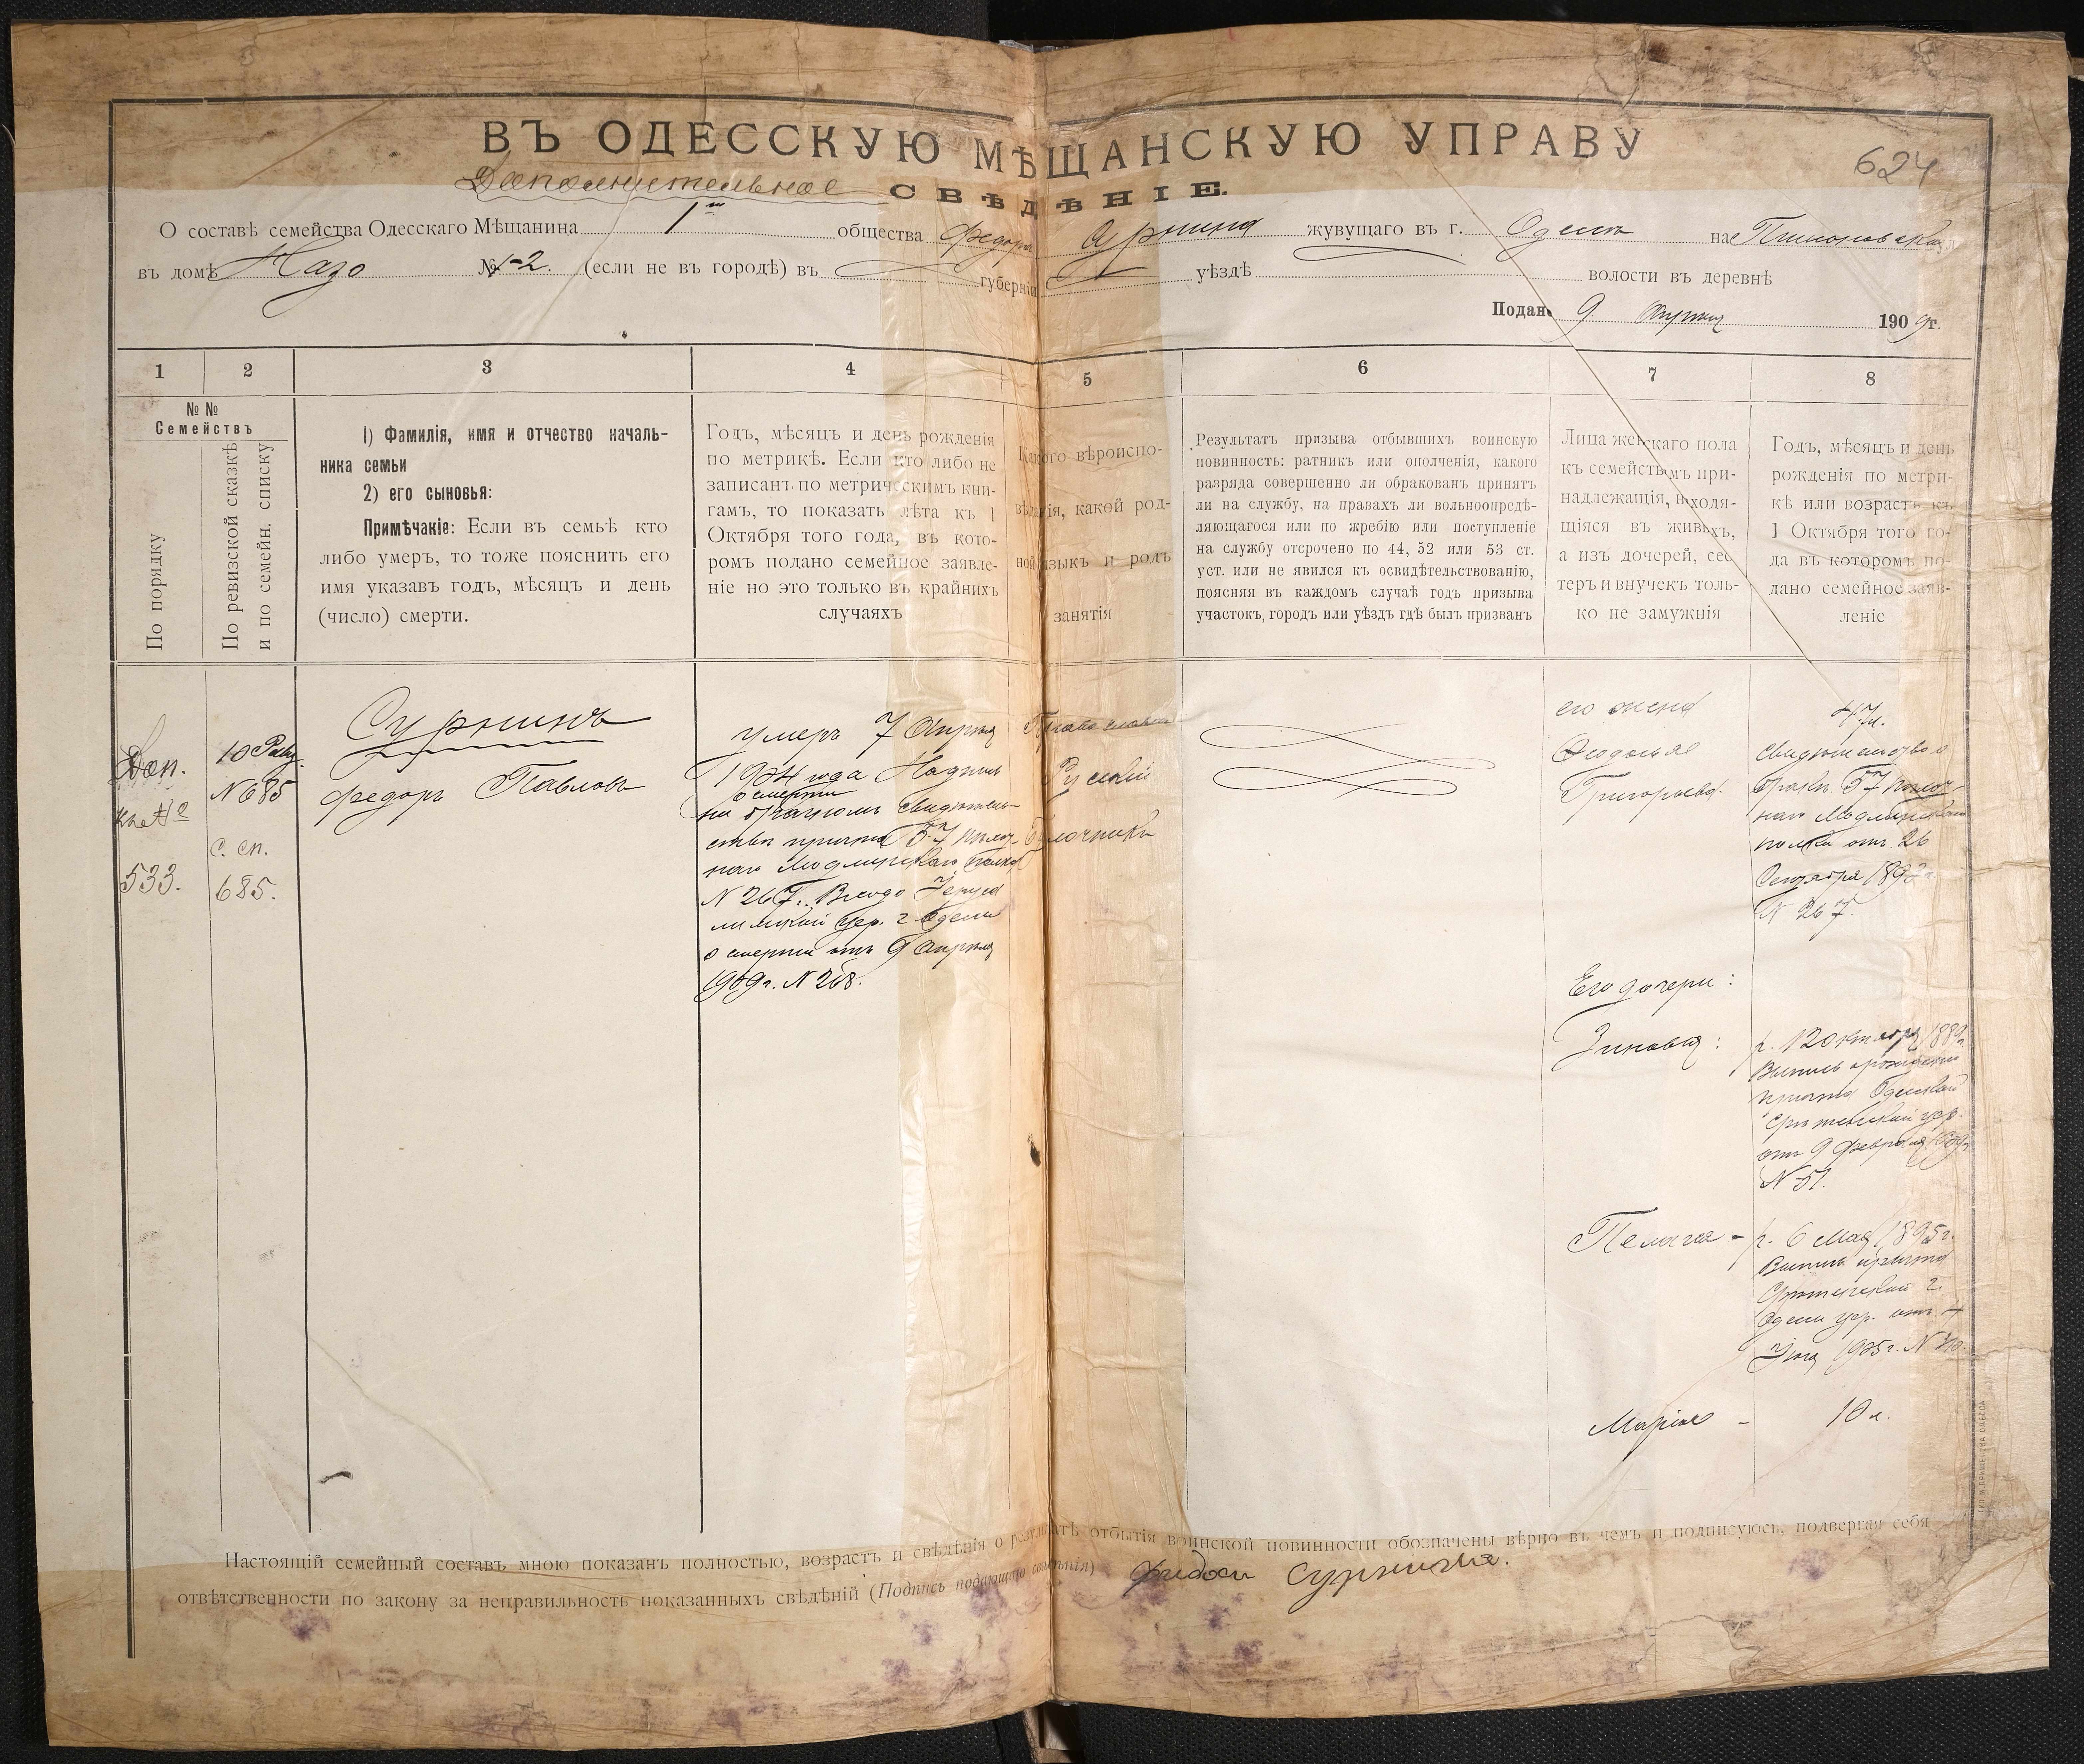 ВЪ ОДЕССКУЮ МѢЩАНСКУЮ УПРАВУ
624
Дополнительное СВѢДѢНІЕ.
О составѣ семейства Одесскаго Мѣщанина 1го общества Федора Сурнина жувущаго въ г. Одессѣ на
въ домѣ Назо № 1-2. (если не въ городѣ) въ губерніи уѣздѣ волости въ деревнѣ
Подано 9 Апрѣля 1909 г.
1 2 3 4 5 6 7 8
№ №
Семействъ
По порядку
По ревизской сказкѣ
и по семейн. списку
1) Фамилія, имя и отчество началь-
ника семьи
2) его сыновья:
Примѣчакіе: Если въ семьѣ кто
либо умеръ, то тоже пояснить его
имя указавъ годъ, мѣсяцъ и день
(число) смерти.
Годъ, мѣсяцъ и день рожденія
по метрикѣ. Если кто либо не
записанъ по метрическимъ кни-
гамъ, то показать лѣта къ 1
Октября того года, въ кото-
ромъ подано семейное заявле-
ніе но это только въ крайнихъ
случаяхъ
Какого вѣроиспо-
вѣданія, какой род-
ной языкъ и родъ
занятія
Результатъ призыва отбывшихъ воинскую
повинность: ратникъ или ополченія, какого
разряда совершенно ли обракованъ принятъ
ли на службу, на правахъ ли вольноопредѣ-
ляющагося или по жребію или поступленіе
на службу отсрочено по 44, 52 или 53 ст.
уст. или не явился къ освидѣтельствованію,
поясняя въ каждомъ случаѣ годъ призыва
участокъ, городъ или уѣздъ гдѣ былъ призванъ
Лица женскаго пола
къ семействамъ при-
надлежащія, находя-
щіяся въ живыхъ,
а изъ дочерей, сес
теръ и внучекъ толь-
ко не замужнія
Годъ, мѣсяцъ и день
рожденія по метри-
кѣ или возрастъ къ
1 Октября того го-
да въ которомъ по-
дано семейное заяв-
леніе
Доп.
къ №
533.
10 Рев.
№ 685
с. сп.
685.
Сурнинъ
Федоръ Павловъ
умеръ 7 Апрѣля
года Надпись
о смерти
на брачномъ свидѣтель-
ствѣ причта 57 пѣхот-
наго Модлинскаго полка
№ 267.
цер. г. Одессы
о смерти отъ 9 Апрѣля
1909 г. № 268.
Православн
Русскій
его жена
Феодосія
Григорьева.
47 л.
Свидѣтельство о
бракѣ 57 пѣхот-
наго Модлинскаго
полка отъ 26
Сентября
№ 267.
Его дочери:
Зиновія:
р. 12 Октября 1889 г.
Выпись о рожденіи
причта Одесской
Срѣтенской цер.
отъ 9 Февраля 1909 г.
№ 51.
Пелагея -
р. 6 Мая 1895 г.
Выпись причта
Срѣтенской г.
Одессы цер. отъ
Марія - 10 л.
Настоящій семейный составъ мною показанъ полностью, возрастъ и свѣдѣнія о результатѣ отбытія воинской повинности обозначены вѣрно въ чемъ и подписуюсь, подвергая себя
отвѣтственности по закону за неправильность показанныхъ свѣдѣній (Подпись подающаго свѣдѣнія) Сурнина.